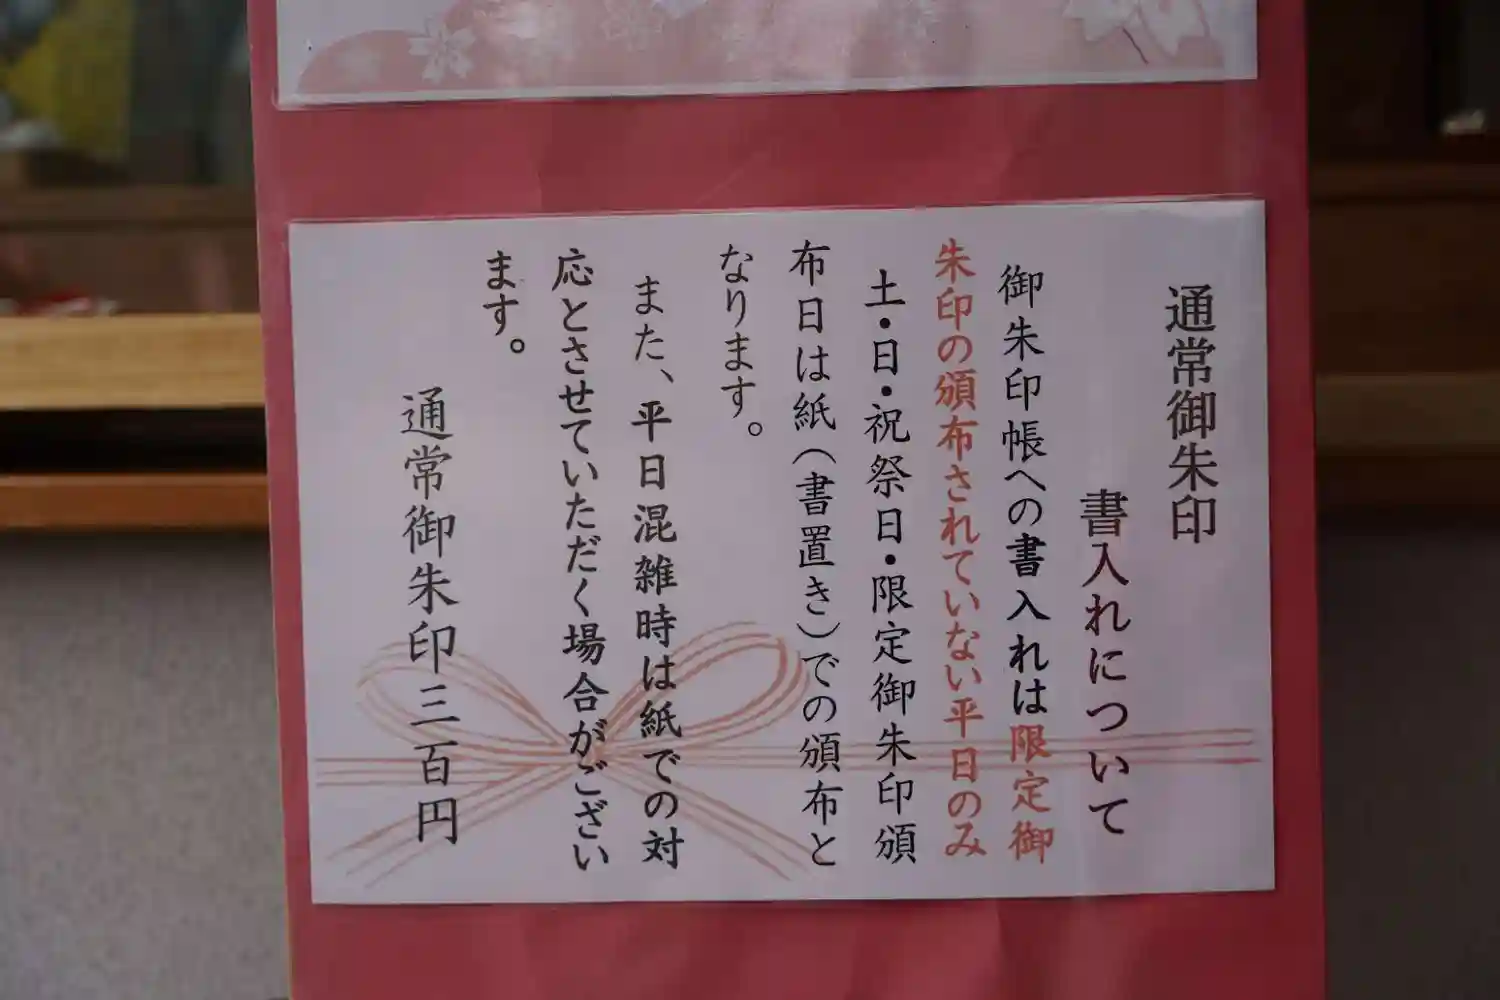 通常御朱印
書入れについて
御朱印帳への書入れは限定御
朱印の頒布されていない平日のみ
土・日・祝祭日・限定御朱印頒
布日は紙(書置き)での頒布と
なります。
また、平日混雑時は紙での対
応とさせていただく場合がござい
ます。
通常御朱印三百円